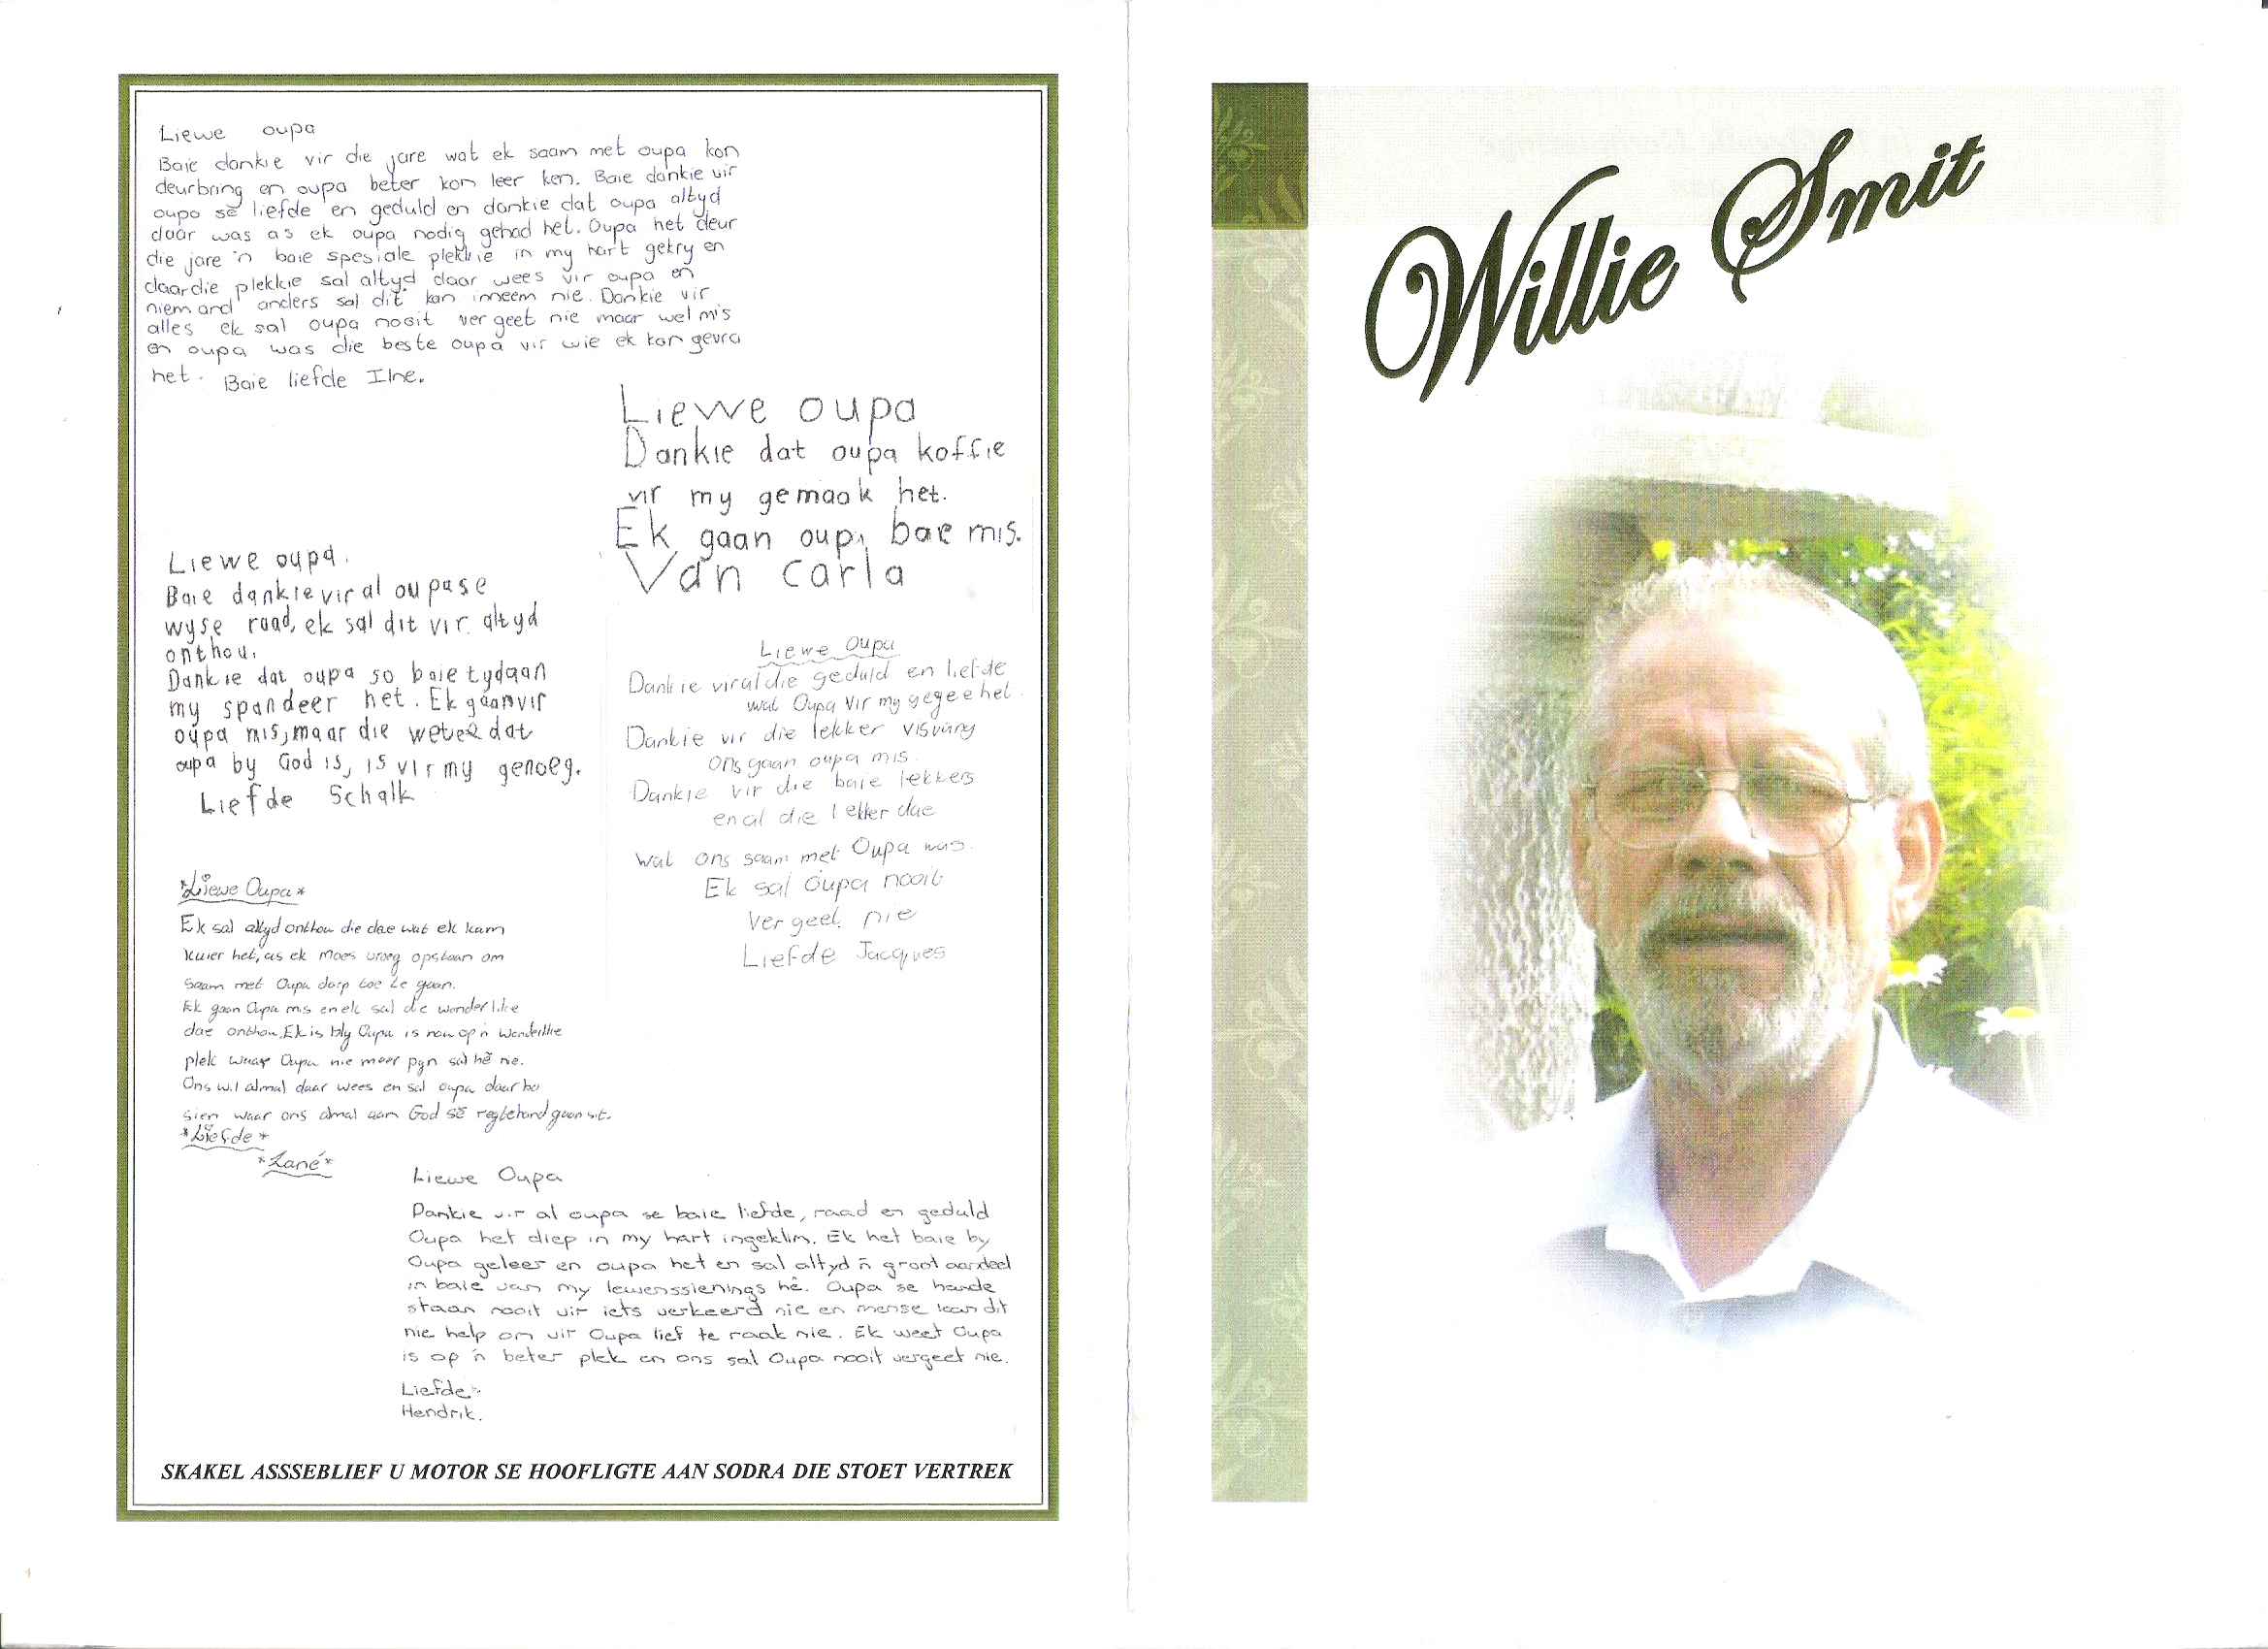 Liewe oupa
Baie dankie vir die jare wat ek saam met oupa kon
deurbring en oupa beter kon leer ken. Baie dankie vir
oupa sê liefde en geduld en dankie dat oupa altyd
daar was as ek oupa nodig gehad het. Oupa het deur
die jare 'n baie spesiale plekkie in my hart gekry en
daardie plekkie sal altyd daar wees vir oupa en
niemand anders sal dit kan inneem nie. Dankie vir
alles ek sal oupa nooit vergeet nie maar wel mis
en oupa was die beste oupa vir wie ek kon gevra
het. Baie liefde Ilne.
Liewe oupa
Dankie dat oupa koffie
vir my gemaak het.
Ek gaan oupa bae mis.
Van carla
Liewe oupa.
Baie dankie vir al oupase
wyse raad, ek sal dit vir altyd
onthou.
Dankie dat oupa so baie tyd aan
my spandeer het. Ek gaan vir
oupa mis, maar die wete dat
oupa by God is, is vir my genoeg.
Liefde Schalk
Liewe Oupa
Dankie vir al die geduld en liefde
wat Oupa vir my gegee het.
Dankie vir die lekker visvang
ons gaan oupa mis.
Dankie vir die baie lekkers
en al die lekker dae
wat ons saam met Oupa was.
Ek sal oupa nooit
vergeet nie
Liefde Jacques
*Liewe Oupa*
Ek sal altyd onthou die dae wat ek kam
kuier het, as ek moes vroeg opstaan om
saam met Oupa dorp toe te gaan.
Ek gaan Oupa mis en ek sal die wonderlike
dae onthou. Ek is bly Oupa is nou op 'n wonderlike
plek waar Oupa nie meer pyn sal hê nie.
Ons wil almal daar wees en sal oupa daar bo
sien waar ons almal aan God sê regtehand gaan sit.
*Liefde*
*Lané*
Liewe Oupa
Dankie vir al oupa se baie liefde, raad en geduld
Oupa het diep in my hart ingeklim. Ek het baie by
Oupa geleer en oupa het en sal altyd 'n groot aandeel
in baie van my lewenssienings hê. Oupa se hande
staan nooit vir iets verkeerd nie en mense kan dit
nie help om vir Oupa lief te raak nie. Ek weet Oupa
is op 'n beter plek en ons sal Oupa nooit vergeet nie.
Liefde
Hendrik.
SKAKEL ASSSEBLIEF U MOTOR SE HOOFLIGTE AAN SODRA DIE STOET VERTREK
Willie Smit